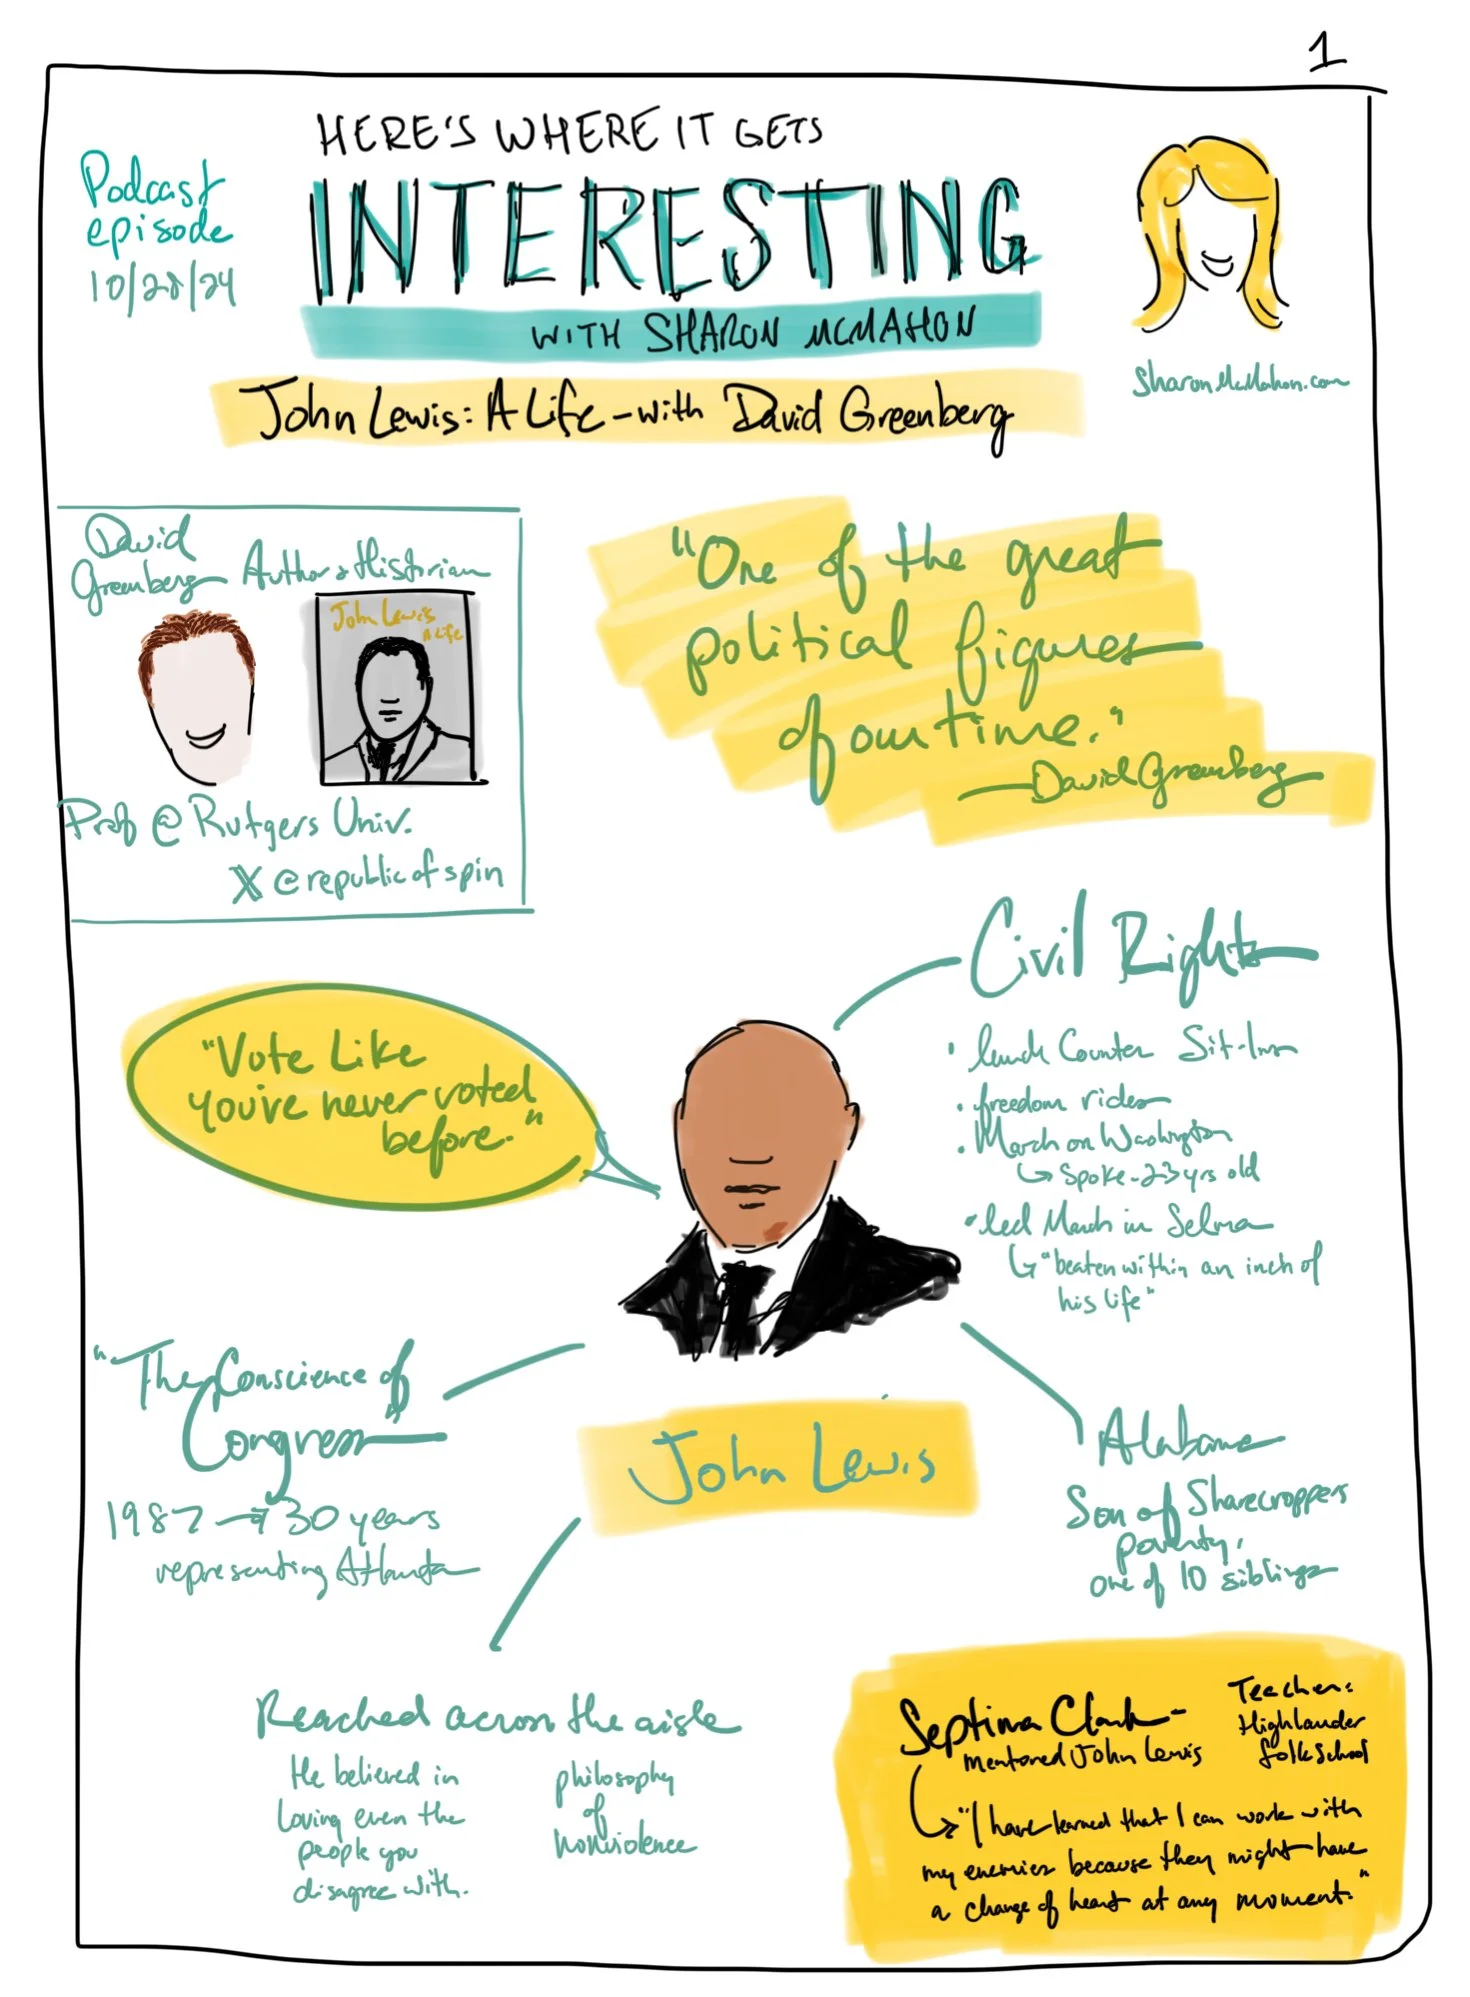 1
HERE'S WHERE IT GETS
INTERESTING
WITH SHARON MCMAHON
Podcast
episode
10/28/24
SharonMcMahon.com
John Lewis: A Life - with David Greenberg
David
Greenberg
Author & Historian
John Lewis
A Life
Prof @ Rutgers Univ.
X @republicofspin
"One of the great
political figures
of our time."
— David Greenberg
"Vote Like
you've never voted
before."
Civil Rights
• lunch Counter Sit-Ins
• freedom rides
• March on Washington
↳ Spoke - 23 yrs old
• led March in Selma
↳ "beaten within an inch of
his life"
"The Conscience of
Congress
1987 → 30 years
representing Atlanta
John Lewis
Alabama
Son of Sharecroppers
poverty,
one of 10 siblings
Reached across the aisle
He believed in
loving even the
people you
disagree with.
philosophy
of
nonviolence
Septima Clark -
mentored John Lewis
Teacher:
Highlander
folk School
↳ "I have learned that I can work with
my enemies because they might have
a change of heart at any moment."